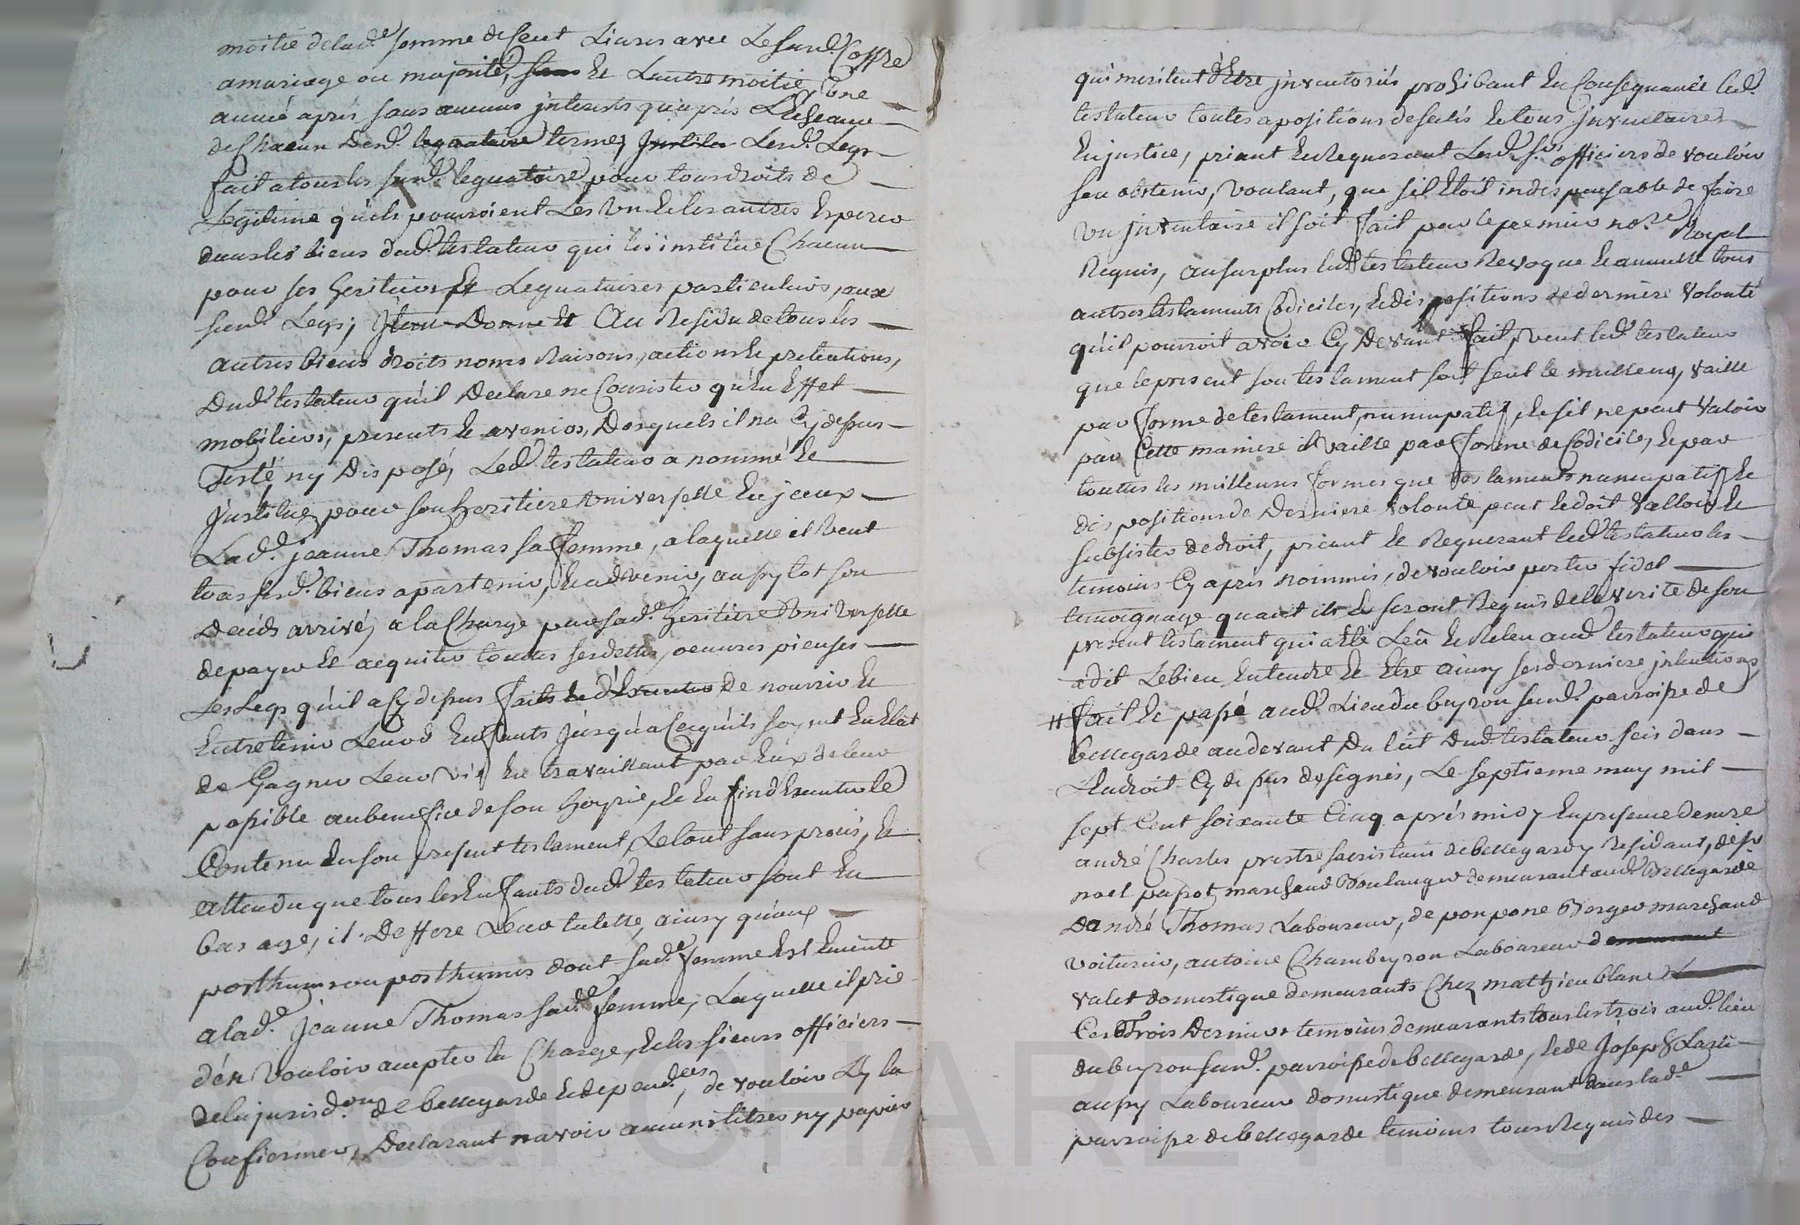 moitié de lad.e somme de sent Livres avec Le surd. Coffre
a mariage ou majorité, et Lautre moitié Une
année aprés sans aucuns jnterests qu'aprés L'echeance
de Chacun Desd. termes, Lesd. Legs
fait a tous les surd. leguataires pour tous droits de
Legitime qu'ils pourroient Les Vns et les autres Esperer
dans les biens dud. testateur qui les institue Chacun
pour ses heritiers et Leguataires particuliers, aux
surd. Legs; Au Residu de tous les
autres biens droits noms Raisons, actions et pretentions,
Dud. testateur qu'il Declare ne Consister qu'En Effet
mobiliers, presents et avenirs, Desquels il na Cy dessus
Testé, ny Disposé, Led. testateur a nommé et
Jnstitué pour son heritiere Universelle En jceux
Lad.e jeanne Thomas sa femme, a laquelle il Veut
tous sesd. biens apartenir, et advenir, aussy tot son
Deceds arrivé; a la Charge par sad.e heritiere Universelle
de payer et acquiter toutes ses dettes, oeuvres pieuses
Les Legs qu'il a Cy dessus faits de nourrir et
Entretenir Leurd Enfants Jusqu'a Ce qu'ils soyent En Etat
de Gagner Leur Vie En travaillant par Eux de leur
possible au benefice de son hoyrie, et En fin d'Executer le
Contenu En son present testament, Le tout sans procés, et
attendu que tous les Enfants dud. testateur sont En
bas age, il Deffere Leur tutelle, ainsy qu'aux
posthumes ou posthumes dont sad.e femme Est Enceinte
a lad.e Jeanne Thomas sad.e femme, Laquelle il prie
d'En Vouloir accepter la Charge, et les sieurs officiers
de la jurisd.on de bellegarde et depend.ces, de vouloir L'y la
Confirmer, Declarant n'avoir aucuns titres ny papier
qui meritent d'Etre jnventoriés prohibant En Consequance Led.
testateur toutes apositions de scelés et tous jnventaires
En justice, priant En Requerant Lesd. s.rs officiers de vouloir
s'en abstenir, Voulant, que s'il Etoit indispensable de faire
Vn jnventaire il soit fait par le premier no.re Royal
Requis, au surplus led. testateur Revoque et annulle tous
autres testaments Codiciles, et dispositions de derniere Volonté
qu'il pourroit avoir Cy Devant fait, Veut led. testateur
que le present son testament soit seul le meilleur, vaille
par forme de testament, nuncupatif, et s'il ne peut Valoir
par Cette maniere il Vaille par forme de Codicile, et par
toutes les meilleures formes que testaments nuncupatifs et
dispositions de Derniere Volonté peut et doit Valloir et
subsister de droit, priant et Requerant led. testateur les
temoins Cy aprés nommés, de vouloir porter fidel
temoignage quant ils En seront Requis de la verité de son
present testament qui a Eté Leu et Releu aud. testateur qui
a dit Le bien Entendre et Etre ainsy ses derniere jntentions
# fait et passé aud. Lieu du beyron surd. parroisse de
bellegarde au devant Du lit Dud. testateur scis dans
L'Endroit Cy dessus designés, Le septieme may mil
sept Cent soixante Cinq aprés midy En presence de mre
andré Charles prestre sacristain de bellegard y residant, de sr
noel papot marchand Boulanger demeurant aud. Bellegarde
D'andré Thomas Laboureur, de pompone Verger marchand
voiturier, antoine Chambeyron Laboureur
valet domestique demeurants Chez mathieu blanc
Ces Trois Derniers temoins demeurants tous les trois aud. lieu
du beyron surd. parroisse de bellegarde, et de Joseph
aussy Laboureur domestique demeurant dans lad.e
parroisse de bellegarde temoins tous Requis des